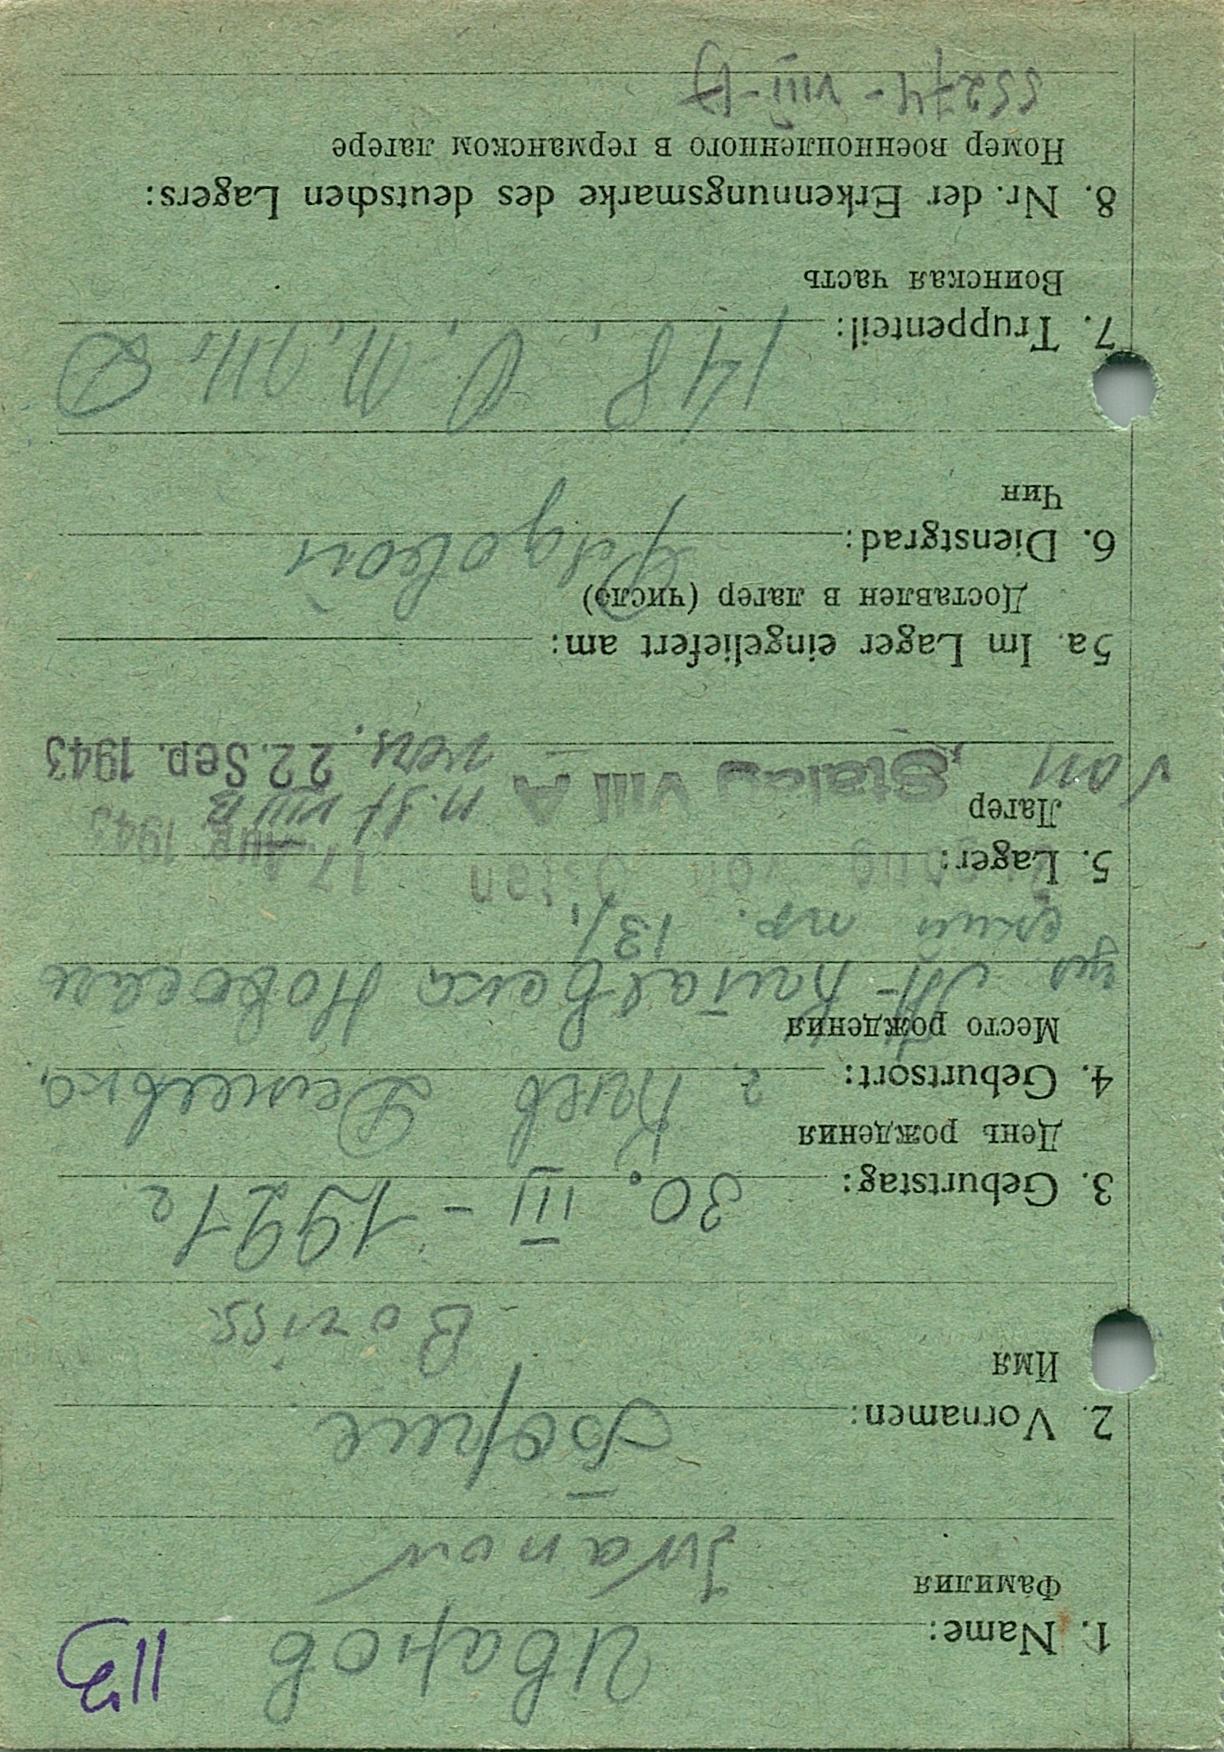 1. Name: Иванов
Фамилия
Iwanow
2. Vornamen: Борис
Имя
Boriss
3. Geburtstag: 30. III – 1921 г.
День рождения
4. Geburtsort: г. Киев
Место рождения
тр. 13/1
5. Lager: 17. Aug. 1943
Лагер
von Stalag VIII A n. St VIII B
22. Sep. 1943
5a. Im Lager eingeliefert am:
Доставлен в лагер (число)
6. Dienstgrad: Рядовой
Чин
7. Truppenteil: 148,
Воинская часть
8. Nr. der Erkennungsmarke des deutschen Lagers:
Номер военнопленного в германском лагере
55274 - VIII - A